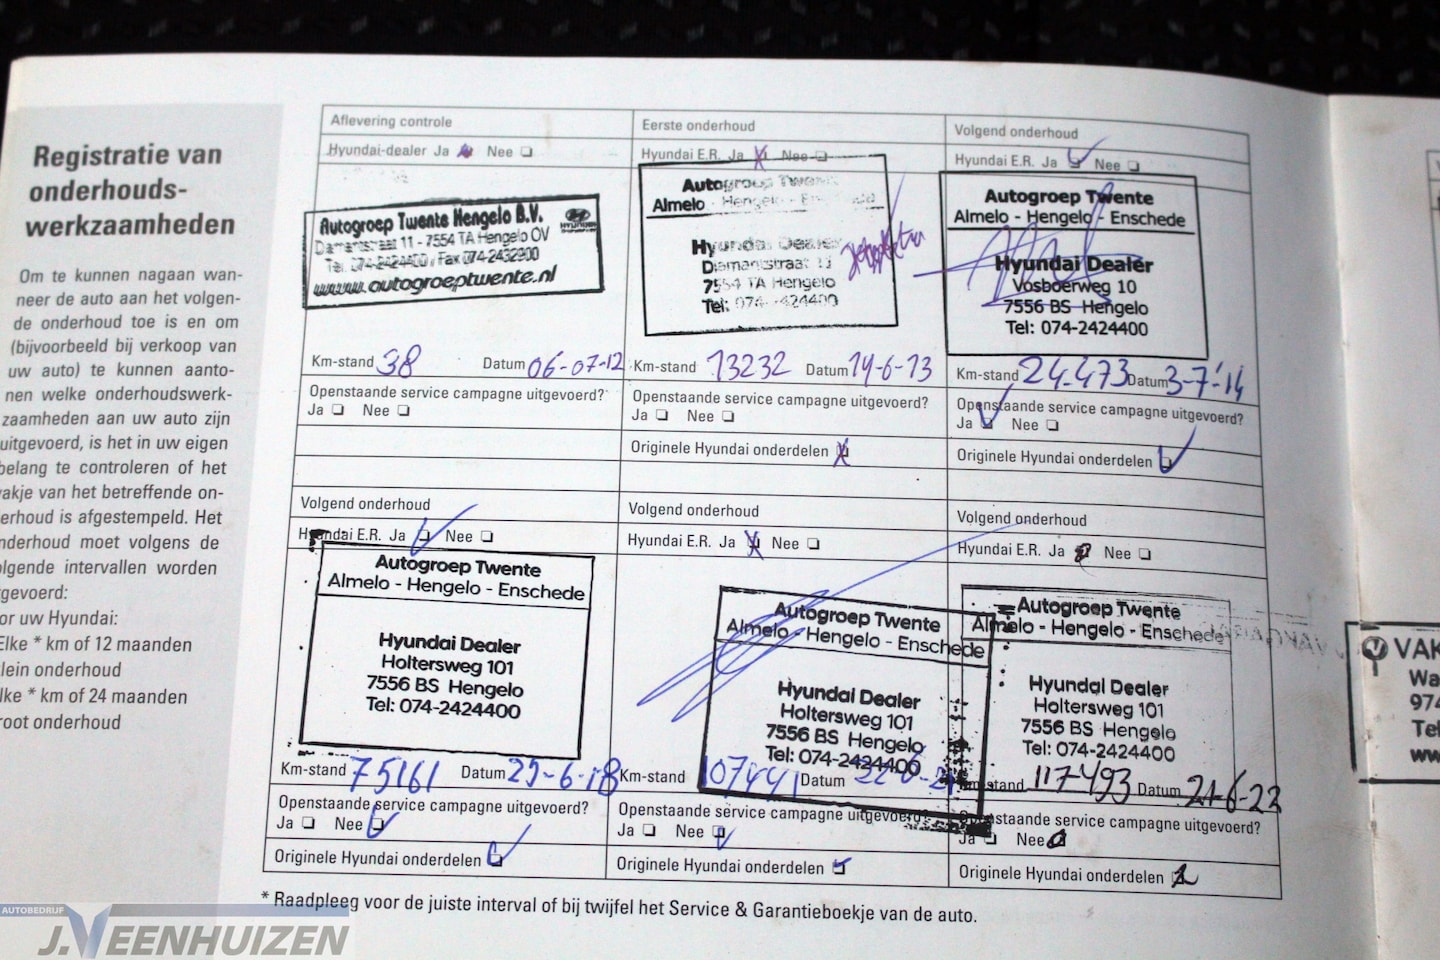 Registratie van
onderhouds-
werkzaamheden
Om te kunnen nagaan wan-
neer de auto aan het volgen-
de onderhoud toe is en om
(bijvoorbeeld bij verkoop van
uw auto) te kunnen aanto-
nen welke onderhoudswerk-
zaamheden aan uw auto zijn
uitgevoerd, is het in uw eigen
belang te controleren of het
vakje van het betreffende on-
erhoud is afgestempeld. Het
nderhoud moet volgens de
olgende intervallen worden
tgevoerd:
or uw Hyundai:
Elke * km of 12 maanden
klein onderhoud
lke * km of 24 maanden
root onderhoud
Aflevering controle
Hyundai-dealer Ja Nee
Autogroep Twente Hengelo B.V.
HYUNDAI
Diamantstraat 11 - 7554 TA Hengelo OV
Tel. 074-2424400 , Fax 074-2432900
www.autogroeptwente.nl
Km-stand 38 Datum 06-07-12
Openstaande service campagne uitgevoerd?
Ja Nee
Eerste onderhoud
Hyundai E.R. Ja Nee
Autogroep Twente
Almelo - Hengelo - Enschede
Hyundai Dealer
Diamantstraat 11
7554 TA Hengelo
Tel: 074-2424400
Km-stand 13232 Datum 14-6-13
Openstaande service campagne uitgevoerd?
Ja Nee
Originele Hyundai onderdelen
Volgend onderhoud
Hyundai E.R. Ja Nee
Autogroep Twente
Almelo - Hengelo - Enschede
Hyundai Dealer
Vosboerweg 10
7556 BS Hengelo
Tel: 074-2424400
Km-stand 24-473 Datum 3-7-'14
Openstaande service campagne uitgevoerd?
Ja Nee
Originele Hyundai onderdelen
Volgend onderhoud
Hyundai E.R. Ja Nee
Autogroep Twente
Almelo - Hengelo - Enschede
Hyundai Dealer
Holtersweg 101
7556 BS Hengelo
Tel: 074-2424400
Km-stand 75161 Datum 25-6-18
Openstaande service campagne uitgevoerd?
Ja Nee
Originele Hyundai onderdelen
Volgend onderhoud
Hyundai E.R. Ja Nee
Autogroep Twente
Almelo - Hengelo - Enschede
Hyundai Dealer
Holtersweg 101
7556 BS Hengelo
Tel: 074-2424400
Km-stand 107441 Datum 22-6-21
Openstaande service campagne uitgevoerd?
Ja Nee
Originele Hyundai onderdelen
Volgend onderhoud
Hyundai E.R. Ja Nee
Autogroep Twente
Almelo - Hengelo - Enschede
Hyundai Dealer
Holtersweg 101
7556 BS Hengelo
Tel: 074-2424400
Km-stand 117-493 Datum 21-6-22
Openstaande service campagne uitgevoerd?
Ja Nee
Originele Hyundai onderdelen
* Raadpleeg voor de juiste interval of bij twijfel het Service & Garantieboekje van de auto.
VAK
Wa
974
Tel
ww
AUTOBEDRIJF
J.VEENHUIZEN